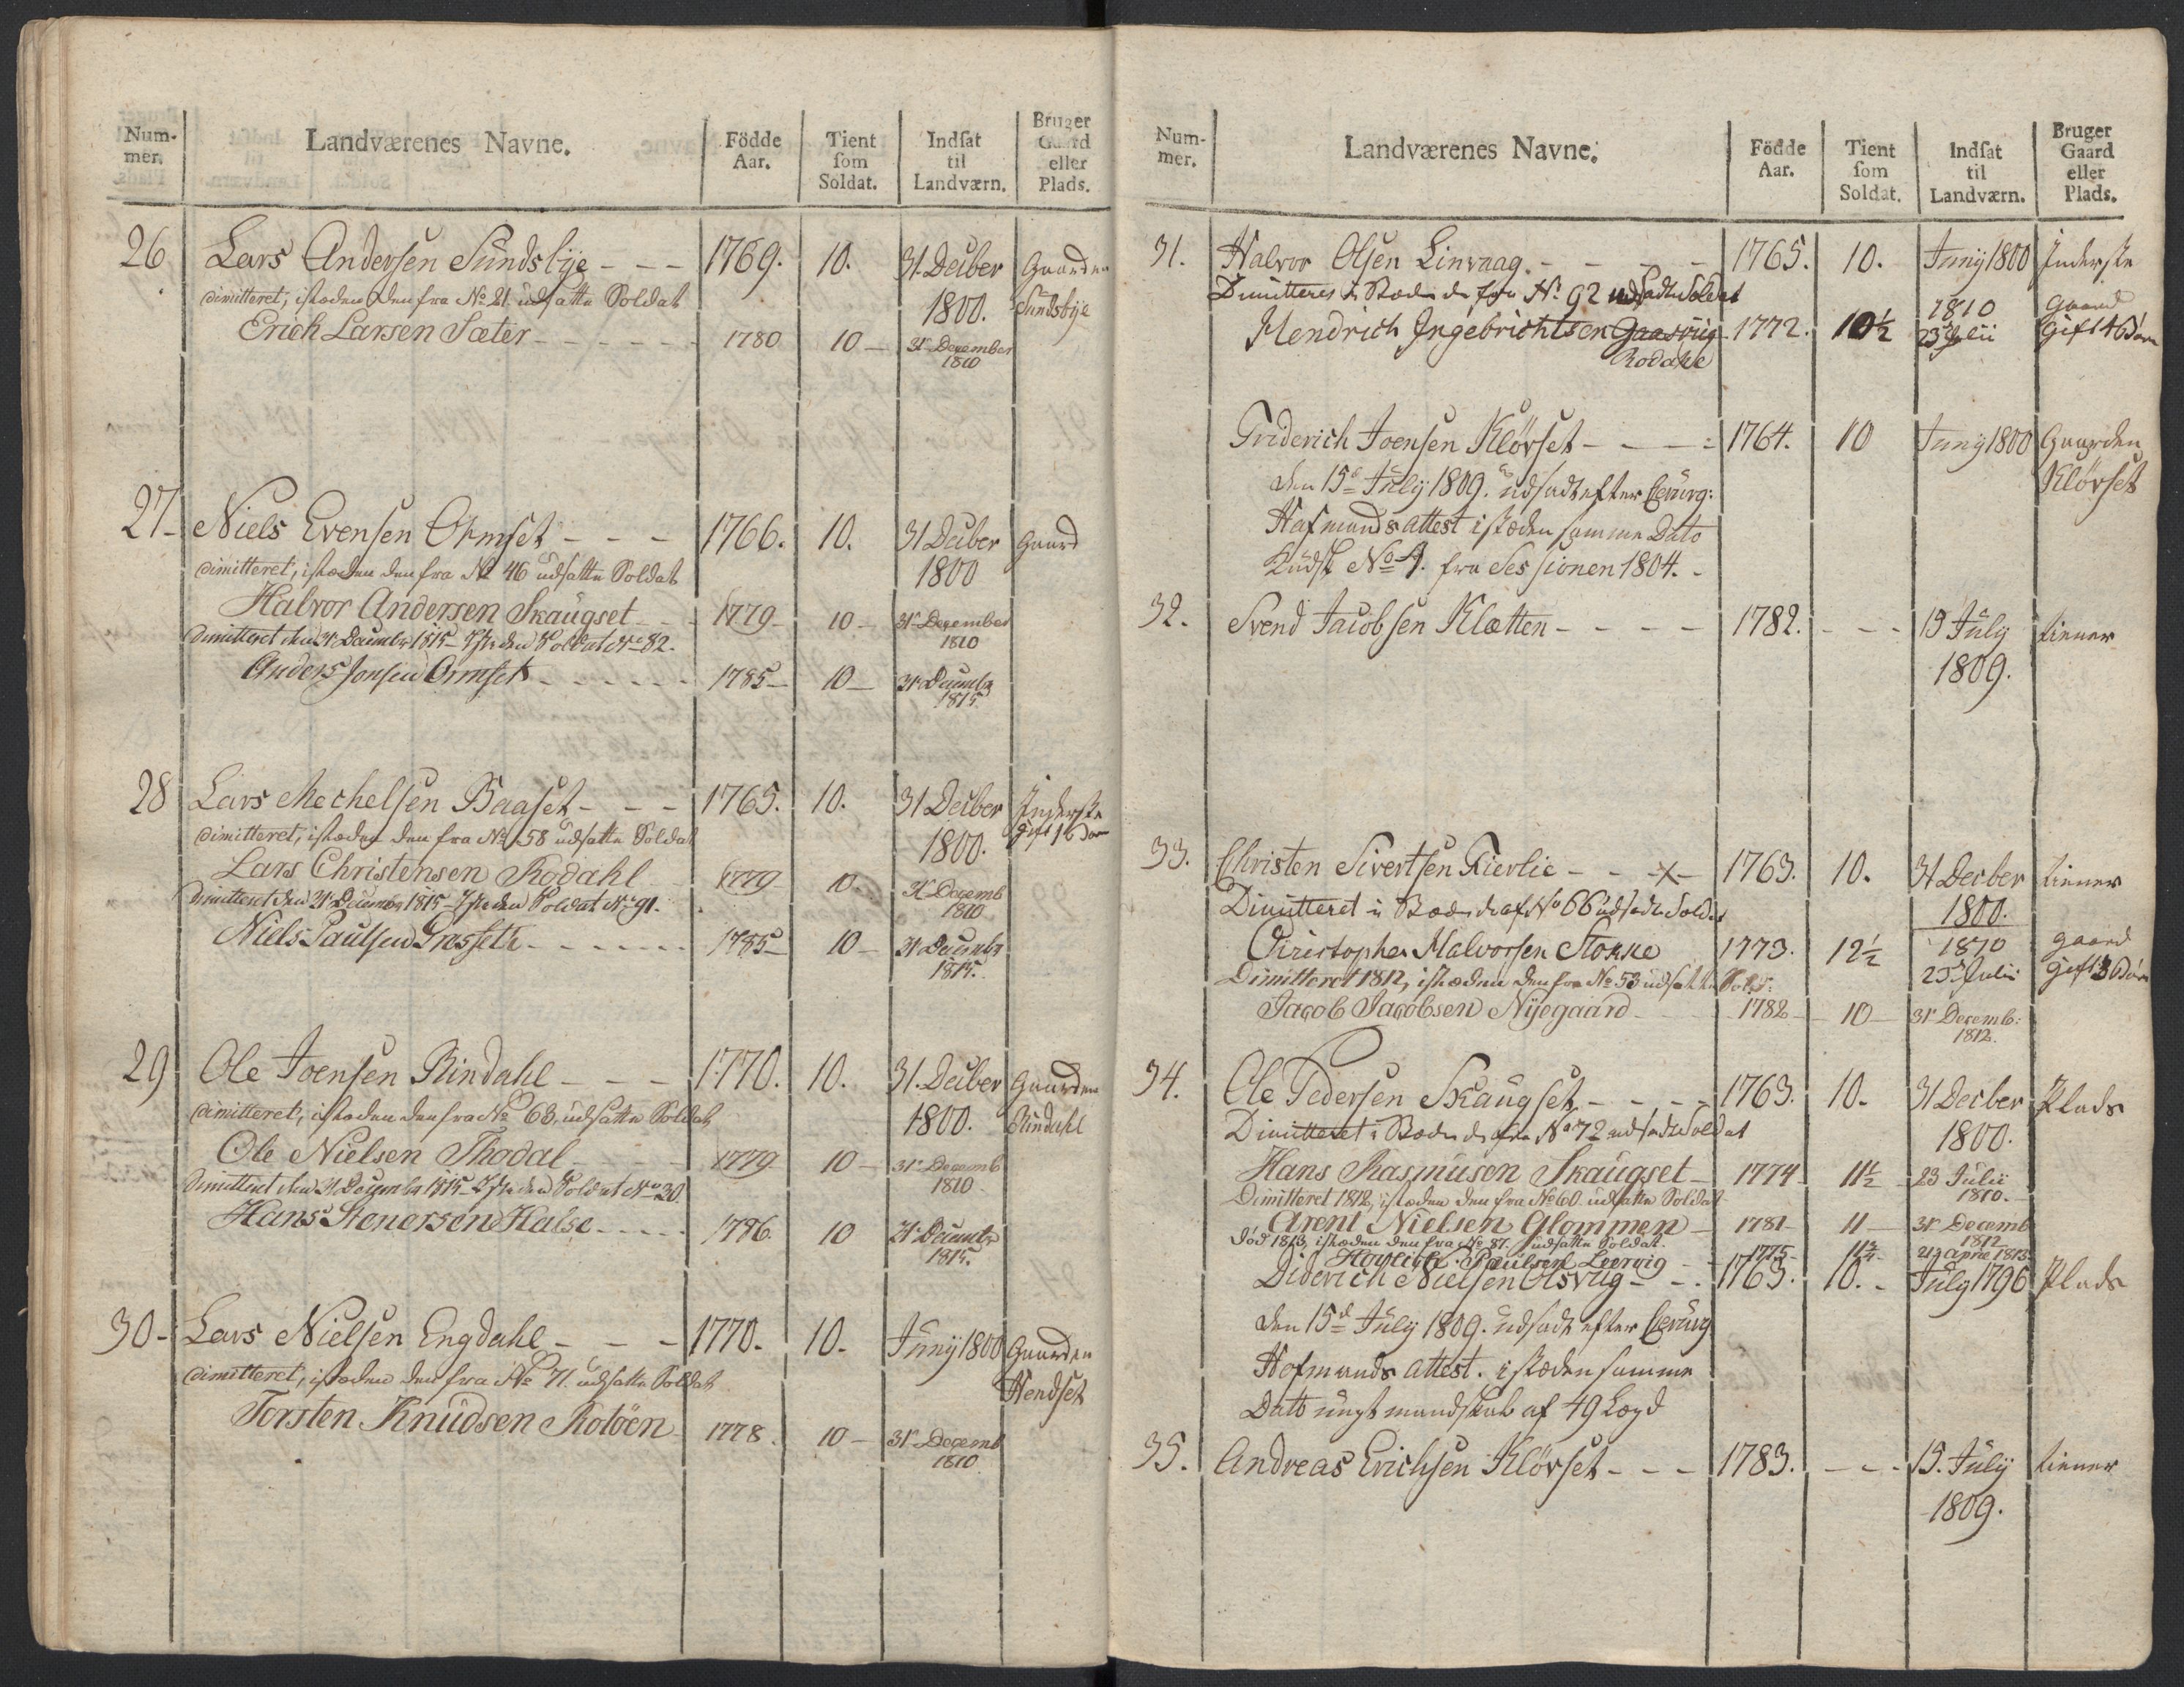 Num-
mer.
Landværenes Navne.
Födde
Aar.
Tient
som
Soldat.
Indsat
til
Landværn.
Bruger
Gaard
eller
Plads.
26 Lars Andersen Sundsbye - - - 1769. 10. 31. Decber Gaarden
dimitteret, isteden den fra No 21. udsatte Soldat 1800. Sundsbye
Erich Larsen Sæter - - - - - - 1780 10 - 31 December
1810
27 - Niels Evensen Ormset - - - 1766. 10. 31 Decber Gaard
dimitteret, isteden den fra No 46 udsatte Soldat 1800
Halvor Andersen Skaugset - - 1779 - 10 - 31 December
dimitteret den 31 December 1815 - Isteden Soldat No 82. 1810
Anders Jonsen Ormset - - - - - - 1785 - 10 - 31 Decembr
1815.
28 Lars Mechelsen Baaset - - - 1765. 10. 31 Decber Inderste
dimitteret, isteden den fra No 58 udsatte Soldat 1800. gift 1 Barn
Lars Christensen Rodahl 1779 10. 31 Decemb
Dimitteret den 31 December 1815 - Isteden Soldat No 91. 1810
Niels Paulsen Græsseth - - - - - - - 1785 - 10 - 31 Decembr
1815.
29 Ole Joensen Rindahl - - - 1770. 10. 31. Decber Gaarden
dimitteret, isteden den fra No 63, udsatte Soldat 1800. Rindahl
Ole Nielsen Thodal - - - - 1779 10 - 31 Decemb
Dimitteret den 31 December 1815 - Isteden Soldat No 20. 1810
Hans Stenersen Halse - - - - - 1796. 10 31 Decembr
1815.
30 - Lars Nielsen Engdahl - - - 1770. 10. Juny 1800 Gaarden
dimitteret, isteden den fra No 71. udsatte Soldat Hendset
Torsten Knudsen Rotöen 1778. 10 - 31 Decemb
1810
Num-
mer.
Landværenes Navne.
Födde
Aar.
Tient
som
Soldat.
Indsat
til
Landværn.
Bruger
Gaard
eller
Plads.
31. Halvor Olsen Linvaag. - - - - - 1765. 10. Juny 1800 Inderste
Dimitteres i Steden de fra No 92 udsadte Soldat 1810 gaard
Hendrich Ingebrichtsen Gaasvig 1772. 10½ 23 Julii gift 4 Börn
Rodahl
Friderich Joensen Klövset - - - - 1764. 10 Juny 1800 Gaarden
den 15d July 1809. udsadt efter Cerurg: Klövset
Hafmands attest isteden samme Dato
Rudst No 4. fra Sessionen 1804. -
32. Svend Jacobsen Klætten - - - - 1782. - - - 15 July tiener
1809.
33. Christen Sivertsen Fierlie - - x - 1763. 10. 31 Decber tiener
Dimitteret i Steden de af No 66 udsadte Soldat 1800.
Christopher Halvorsen Stokke 1773. 12½ 1810 gaard
Dimitteret 1812, isteden den fra No 53 udsatte Sold: 23 Julii gift 3 Börn
Jacob Jacobsen Nÿegaard 1782 - 10 31 Decemb:
1812.
34. Ole Pedersen Skaugset - - - - 1763. 10. 31 Decber Plads
Dimitteret i Steden de fra No 72 udsadte Soldat 1800.
Hans Rasmusen Skaugset - 1774 11½ 23 Julii
Dimitteret 1812, isteden den fra No 60 udsatte Soldat 1810. -
Arent Nielsen Glommen - 1781 - 11 - 31 Decemb
död 1813, isteden den fra No 87. udsatte Soldat 1812
Paulsen Leervig - 1775 - 11¾ 21 April 1813
Diderich Nielsen Olsvug - - 1763. 10. - July 1796 Plads
den 15d July 1809. udsadt efter Cerurg
Hofmands attest. isteden samme
Dato ungt mandskab af 49 Legd
35. Andreas Erichsen Klövset - - - 1783. - - - 15. July tiener
1809.